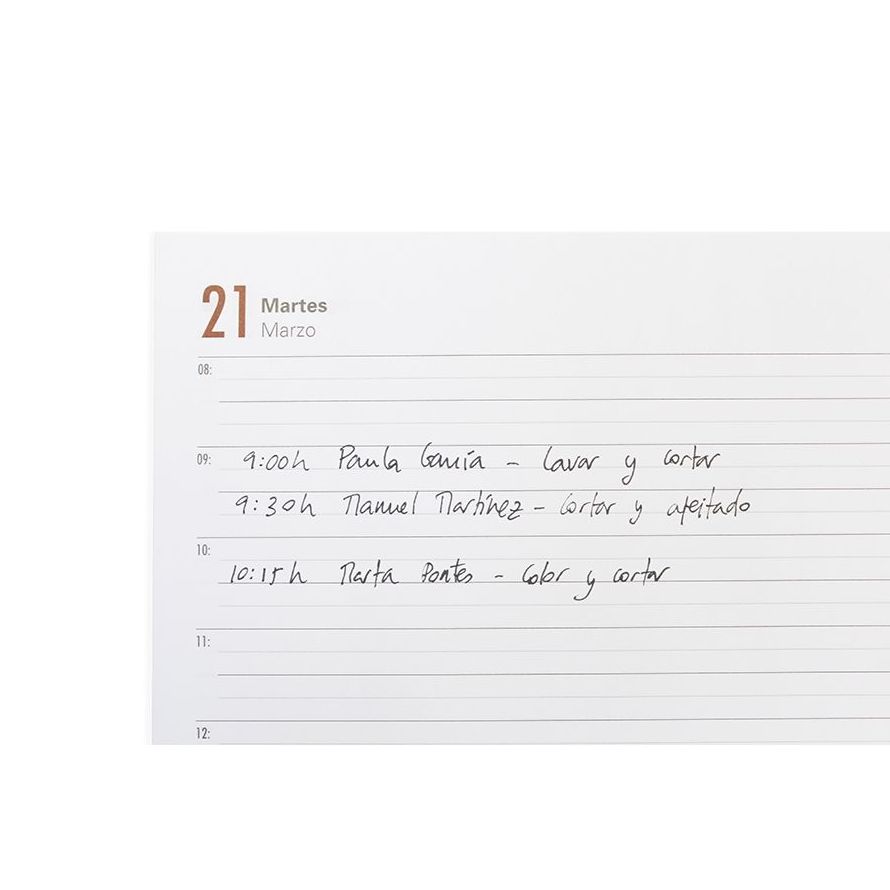 21 Martes
Marzo
08:
09: 9:00h Paula García - Lavar y cortar
9:30h Manuel Martínez - Cortar y afeitado
10:
10:15h Marta Pontes - Color y cortar
11:
12: